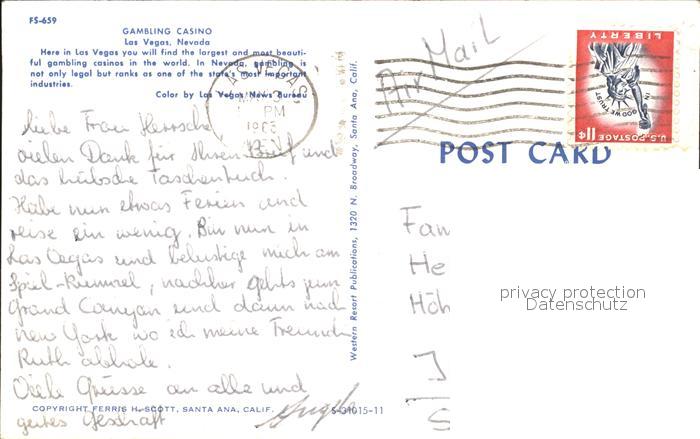 FS-659
GAMBLING CASINO
Las Vegas, Nevada
Here in Las Vegas you will find the largest and most beauti-
ful gambling casinos in the world. In Nevada, gambling is
not only legal but ranks as one of the state's most important
industries.
Color by Las Vegas News Bureau
LAS VEGAS
PM
Air Mail
LIBERTY
IN GOD WE TRUST
U.S. POSTAGE
11¢
POST CARD
Liebe Frau
vielen Dank für Ihren Brief und
das hübsche Taschentuch.
Habe nun etwas Ferien und
reise ein wenig. Bin nun in
Las Vegas und belustige mich am
Spiel-Rummel, nachher gehts zum
Grand Canyan und dann nach
New York wo ich meine Freundin
Ruth abhole.
Viele Grüsse an alle und
gutes Geschäft
COPYRIGHT FERRIS H. SCOTT, SANTA ANA, CALIF.
S-31015-11
Western Resort Publications, 1320 N. Broadway, Santa Ana, Calif.
Fam
He
Höh
privacy protection
Datenschutz